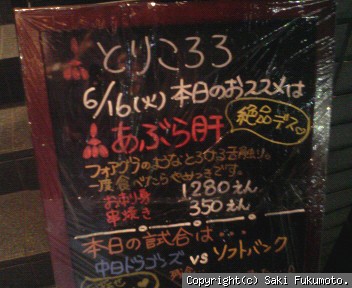 とりころろ
6/16(火)本日のおススメは
あぶら肝
絶品デス
フォアグラのようなとろける舌触り。
一度食べたらやみつきです。
お刺身 1280えん
串焼き 350えん
本日の試合は
中日ドラゴンズ vs ソフトバンク
Copyright(c) Saki Fukumoto.